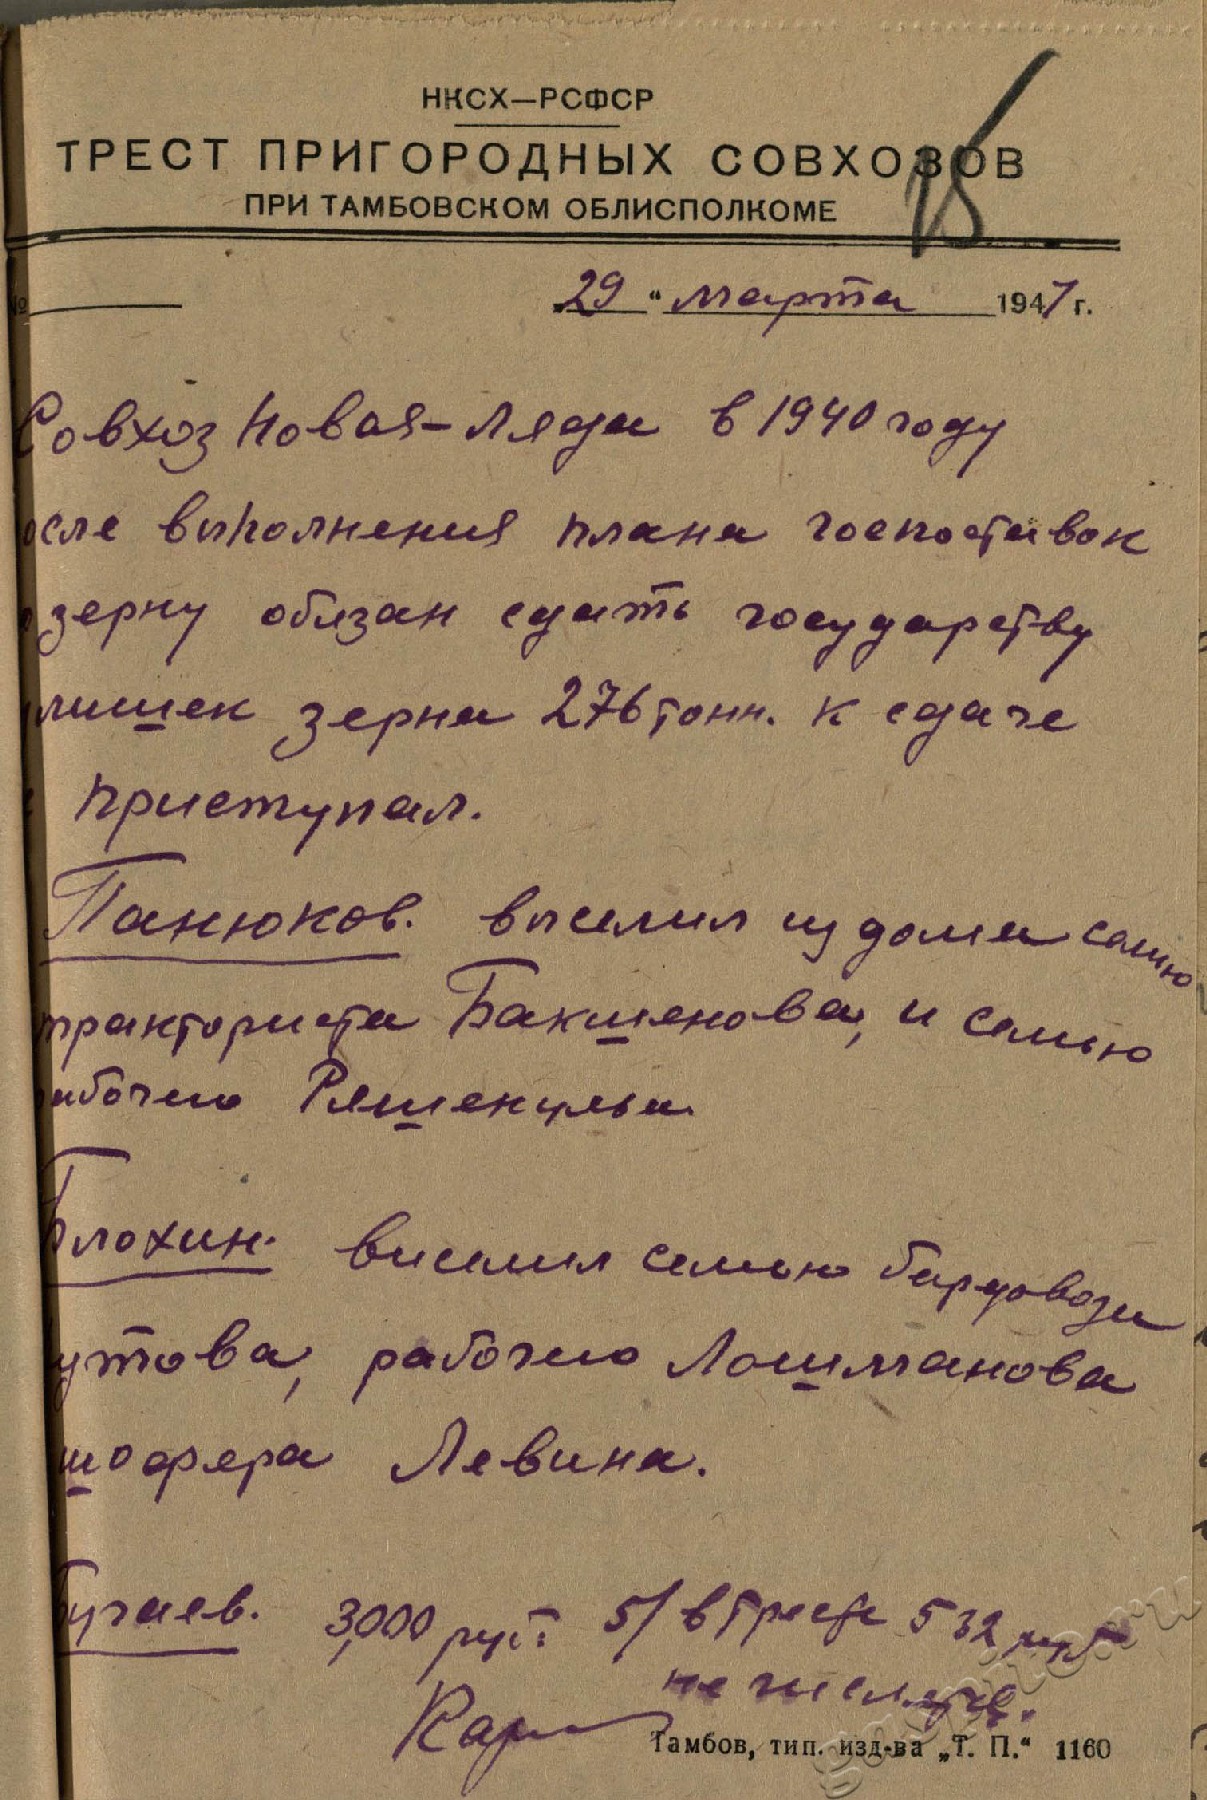 НКСХ—РСФСР
ТРЕСТ ПРИГОРОДНЫХ СОВХОЗОВ
ПРИ ТАМБОВСКОМ ОБЛИСПОЛКОМЕ
№
29 " марта 1941 г.
Совхоз Новая-Ляда в 1940 году
осле выполнения плана госпоставок
зерну обязан сдать государству
лишек зерна 276 тонн. к сдаче
приступал.
Панюков. выселил из дома семью
тракториста Бакшенова, и семью
рабочего
Блохин. выселил семью бардовоза
утова, рабочего Лошманова
шофера Левина.
Бучаев. 3,000 руб. 5/ в тресте 532 руб
не числятся.
Тамбов, тип. изд-ва „Т. П.“ 1160